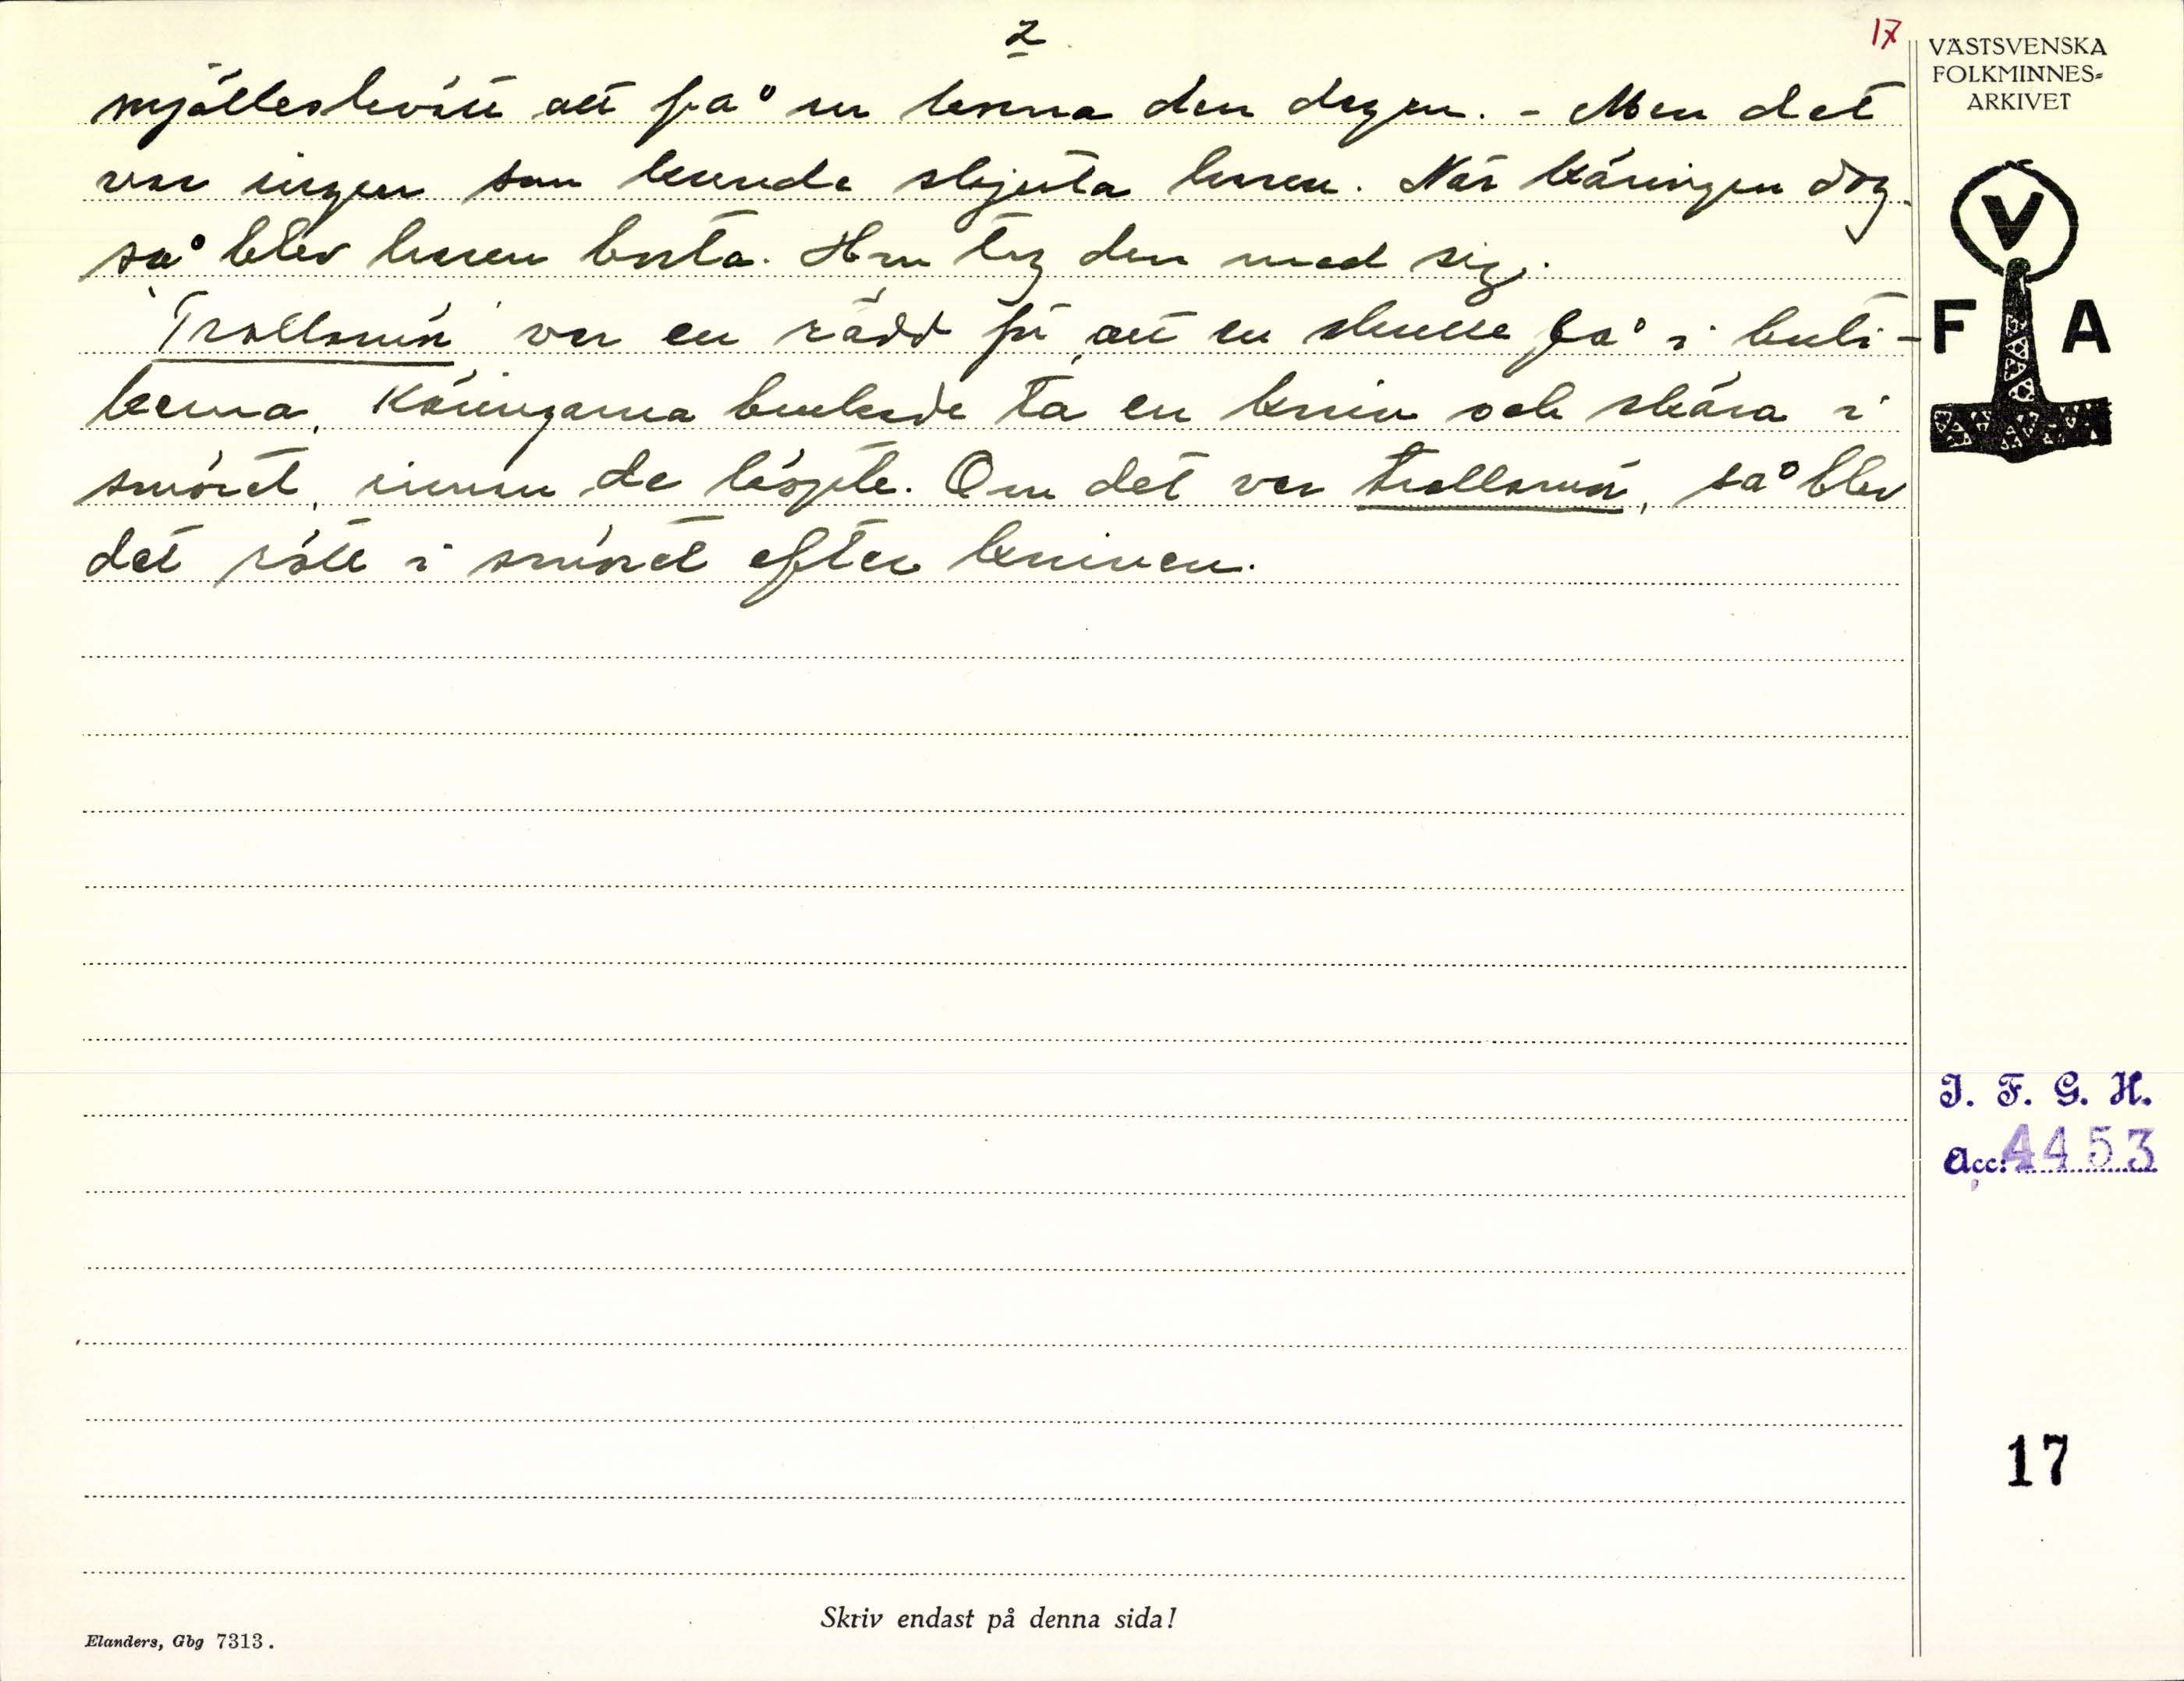 2
17
mjölleskvätt att få en kanna den dagen. - Men det
var ingen som kunde skjuta haren. När käringen dog
så blev haren borta. Hon tog den med sig.
"Trollsmör" var en rädd för att en skulle få i buti-
kerna. Käringarna brukade ta en kniv och skära i
smöret, innan de köpte. Om det var trollsmör, så blev
det rött i smöret efter kniven.
VÄSTSVENSKA
FOLKMINNES-
ARKIVET
V
F A
I. F. G. H.
Acc: 4453
17
Skriv endast på denna sida!
Elanders, Gbg 7313.